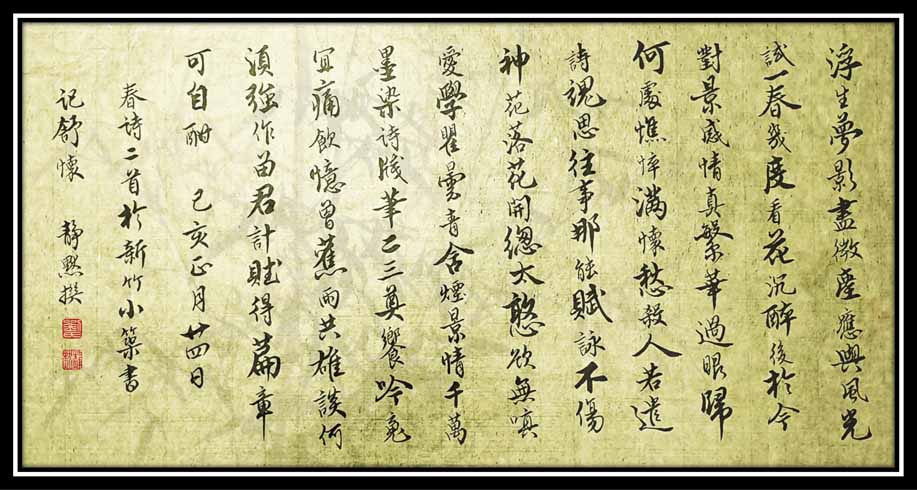 浮生夢影盡微塵應與風光
試一春幾度看花沉醉後於今
對景感情真繁華過眼歸
何處憔悴滿懷愁殺人若遣
詩魂思往事那能賦詠不傷
神花落花開總太憨欲無嗔
愛學瞿曇青舍煙景情千萬
墨染詩牋筆二三奠饗吟
宜痛飲憶曾蕉雨共雄談何
須強作苗君計賦得篇章
可自酬 己亥正月廿四日
春詩二首於新竹小築書
記舒懷 靜默撰